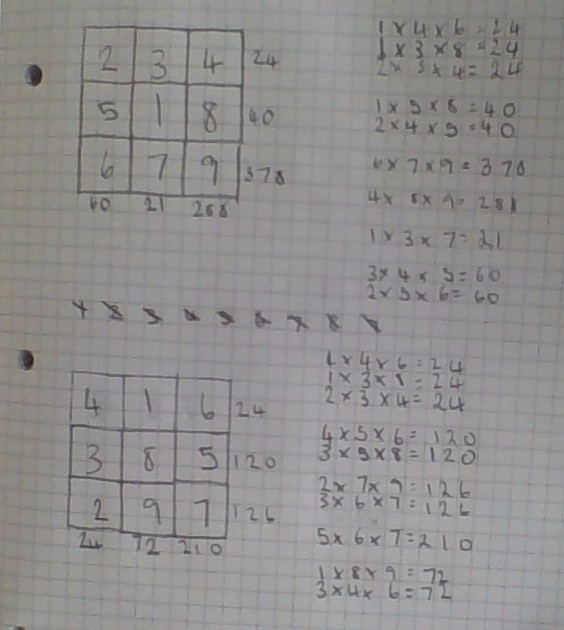 2 3 4 24
5 1 8 40
6 7 9 378
60 21 288
1 × 4 × 6 = 24
1 × 3 × 8 = 24
2 × 3 × 4 = 24
1 × 5 × 8 = 40
2 × 4 × 5 = 40
6 × 7 × 9 = 378
4 × 8 × 9 = 288
1 × 3 × 7 = 21
3 × 4 × 5 = 60
2 × 5 × 6 = 60
4 1 6 24
3 8 5 120
2 9 7 126
24 72 210
1 × 4 × 6 = 24
1 × 3 × 8 = 24
2 × 3 × 4 = 24
4 × 5 × 6 = 120
3 × 5 × 8 = 120
2 × 7 × 9 = 126
3 × 6 × 7 = 126
5 × 6 × 7 = 210
1 × 8 × 9 = 72
3 × 4 × 6 = 72